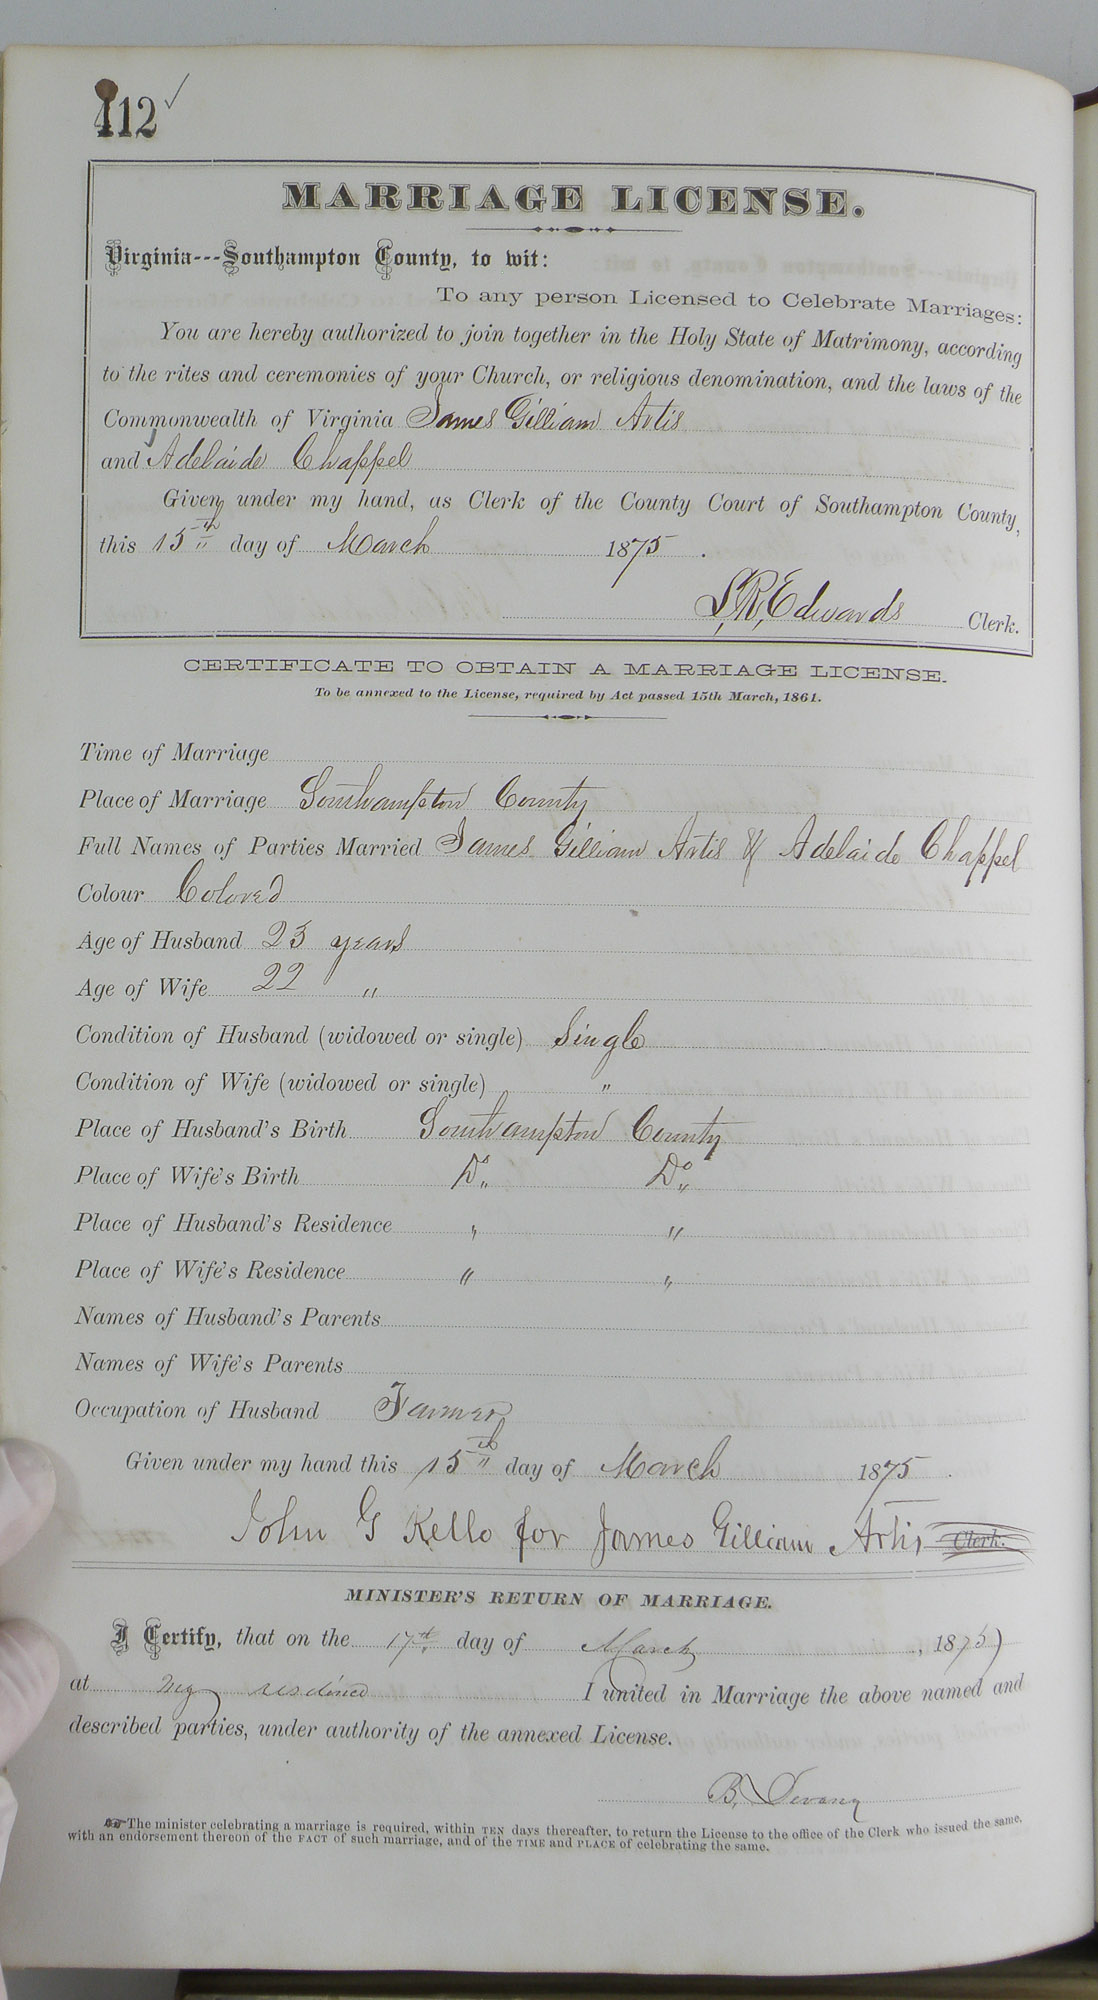 412 ✓
MARRIAGE LICENSE.
Virginia---Southampton County, to wit:
To any person Licensed to Celebrate Marriages:
You are hereby authorized to join together in the Holy State of Matrimony, according
to the rites and ceremonies of your Church, or religious denomination, and the laws of the
Commonwealth of Virginia James Gilliam Artis
and Adelaide Chappel
Given under my hand, as Clerk of the County Court of Southampton County,
this 15th day of March 1875.
S.R. Edwards Clerk.
CERTIFICATE TO OBTAIN A MARRIAGE LICENSE.
To be annexed to the License, required by Act passed 15th March, 1861.
Time of Marriage
Place of Marriage Southampton County
Full Names of Parties Married James Gilliam Artis & Adelaide Chappel
Colour Colored
Age of Husband 23 years
Age of Wife 22 "
Condition of Husband (widowed or single) Single
Condition of Wife (widowed or single) "
Place of Husband's Birth Southampton County
Place of Wife's Birth Do Do
Place of Husband's Residence " "
Place of Wife's Residence " "
Names of Husband's Parents
Names of Wife's Parents
Occupation of Husband Farmer
Given under my hand this 15th day of March 1875.
John G Kello for James Gilliam Artis Clerk.
MINISTER'S RETURN OF MARRIAGE.
I Certify, that on the 17th day of March, 1875
at my I united in Marriage the above named and
described parties, under authority of the annexed License.
B.
The minister celebrating a marriage is required, within TEN days thereafter, to return the License to the office of the Clerk who issued the same,
with an endorsement thereon of the FACT of such marriage, and of the TIME and PLACE of celebrating the same.